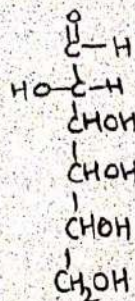 O
C-H
HO-C-H
CHOH
CHOH
CHOH
CH₂OH